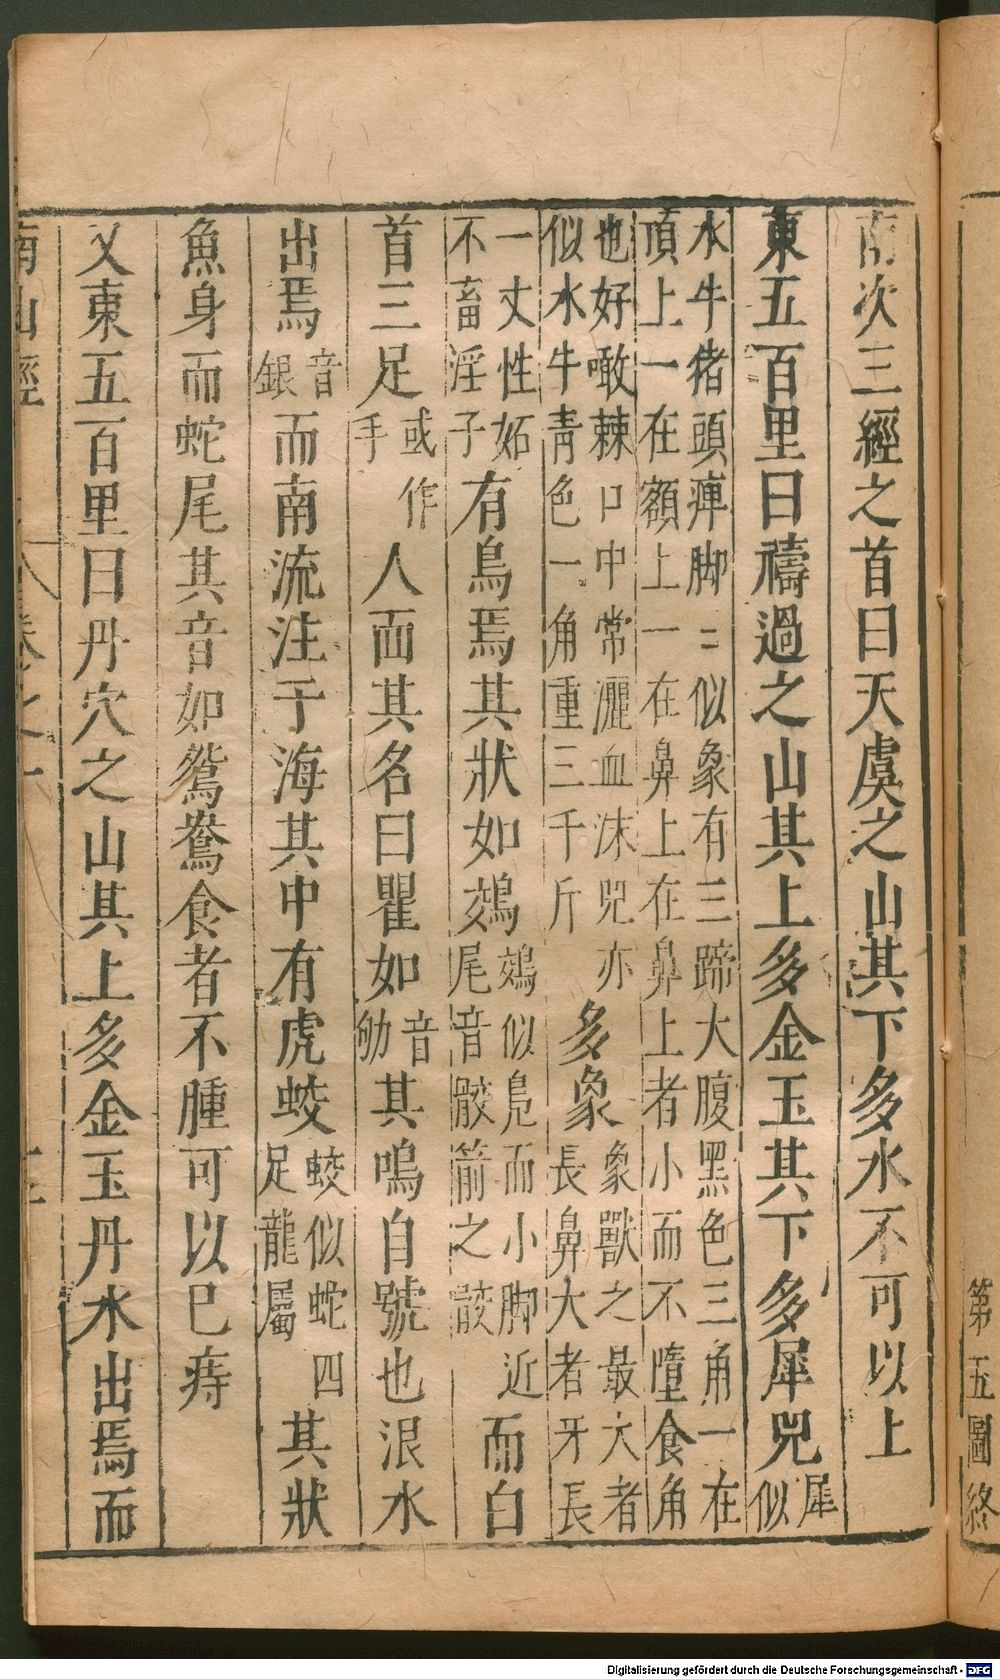 第五圖終
南次三經之首曰天虞之山其下多水不可以上
東五百里曰禱過之山其上多金玉其下多犀兕犀似
水牛猪頭痺脚〻似象有三蹄大腹黑色三角一在
頂上一在額上一在鼻上在鼻上者小而不墮食角
也好噉棘口中常灑血沫兕亦
似水牛青色一角重三千斤
多象象獸之最大者
長鼻大者牙長
一丈性妬
不畜淫子
有鳥焉其狀如鵁鵁似鳧而小脚近
尾音骹箭之骹
而白
首三足或作
手
人面其名曰瞿如音
劬
其鳴自號也泿水
出焉音
銀
而南流注于海其中有虎蛟蛟似蛇四
足龍屬
其狀
魚身而蛇尾其音如鴛鴦食者不腫可以已痔
又東五百里曰丹穴之山其上多金玉丹水出焉而
南山經 卷之一
Digitalisierung gefördert durch die Deutsche Forschungsgemeinschaft - DFG